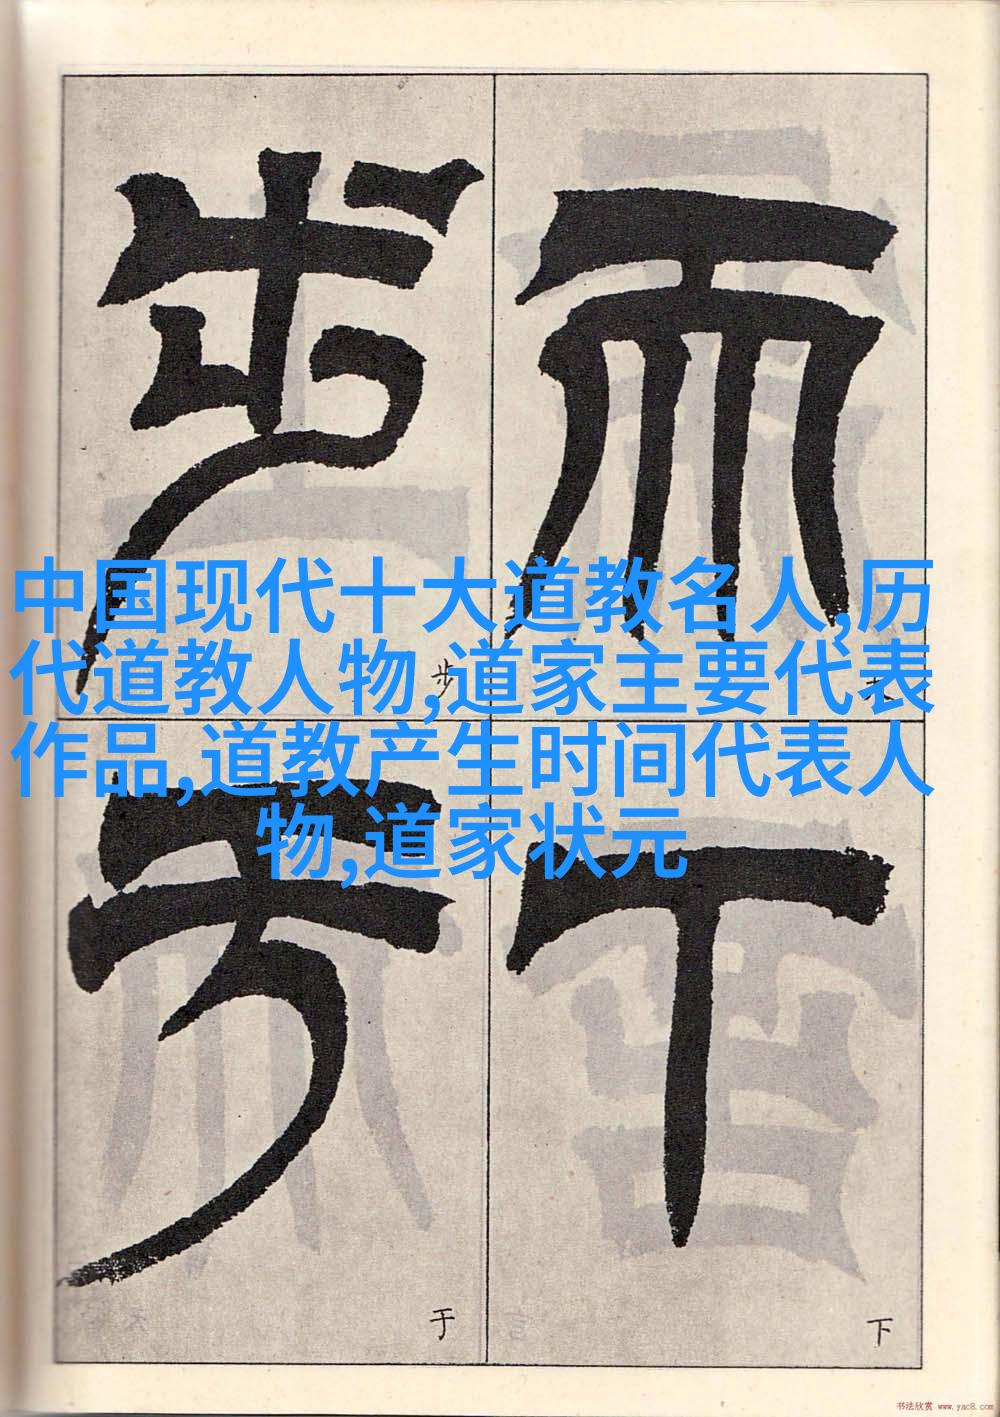 而
下
步
于
中国现代十大道教名人,历
代道教人物,道家主要代表
作品,道教产生时间代表人
物,道家状元
步
于
下
书法欣赏 www.yac8.com